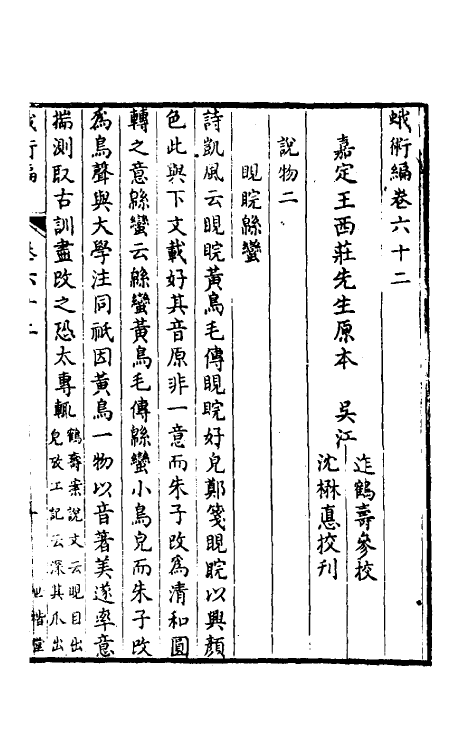 蛾術編卷六十二
嘉定王西莊先生原本 吳江
迮鶴壽參校
沈楙悳挍刊
說物二
睍睆緜蠻
詩凱風云睍睆黃鳥毛傳睍睆好皃鄭箋睍睆以興顏
色此與下文載好其音原非一意而朱子改爲清和圓
轉之意緜蠻云緜蠻黃鳥毛傳緜蠻小鳥皃而朱子改
爲鳥聲與大學注同祇因黃鳥一物以音著美遂率意
揣測取古訓盡改之恐太專輒
鶴壽案說文云睍目出
皃攷工記云深其爪出
蛾術編
卷六十二
世楷堂